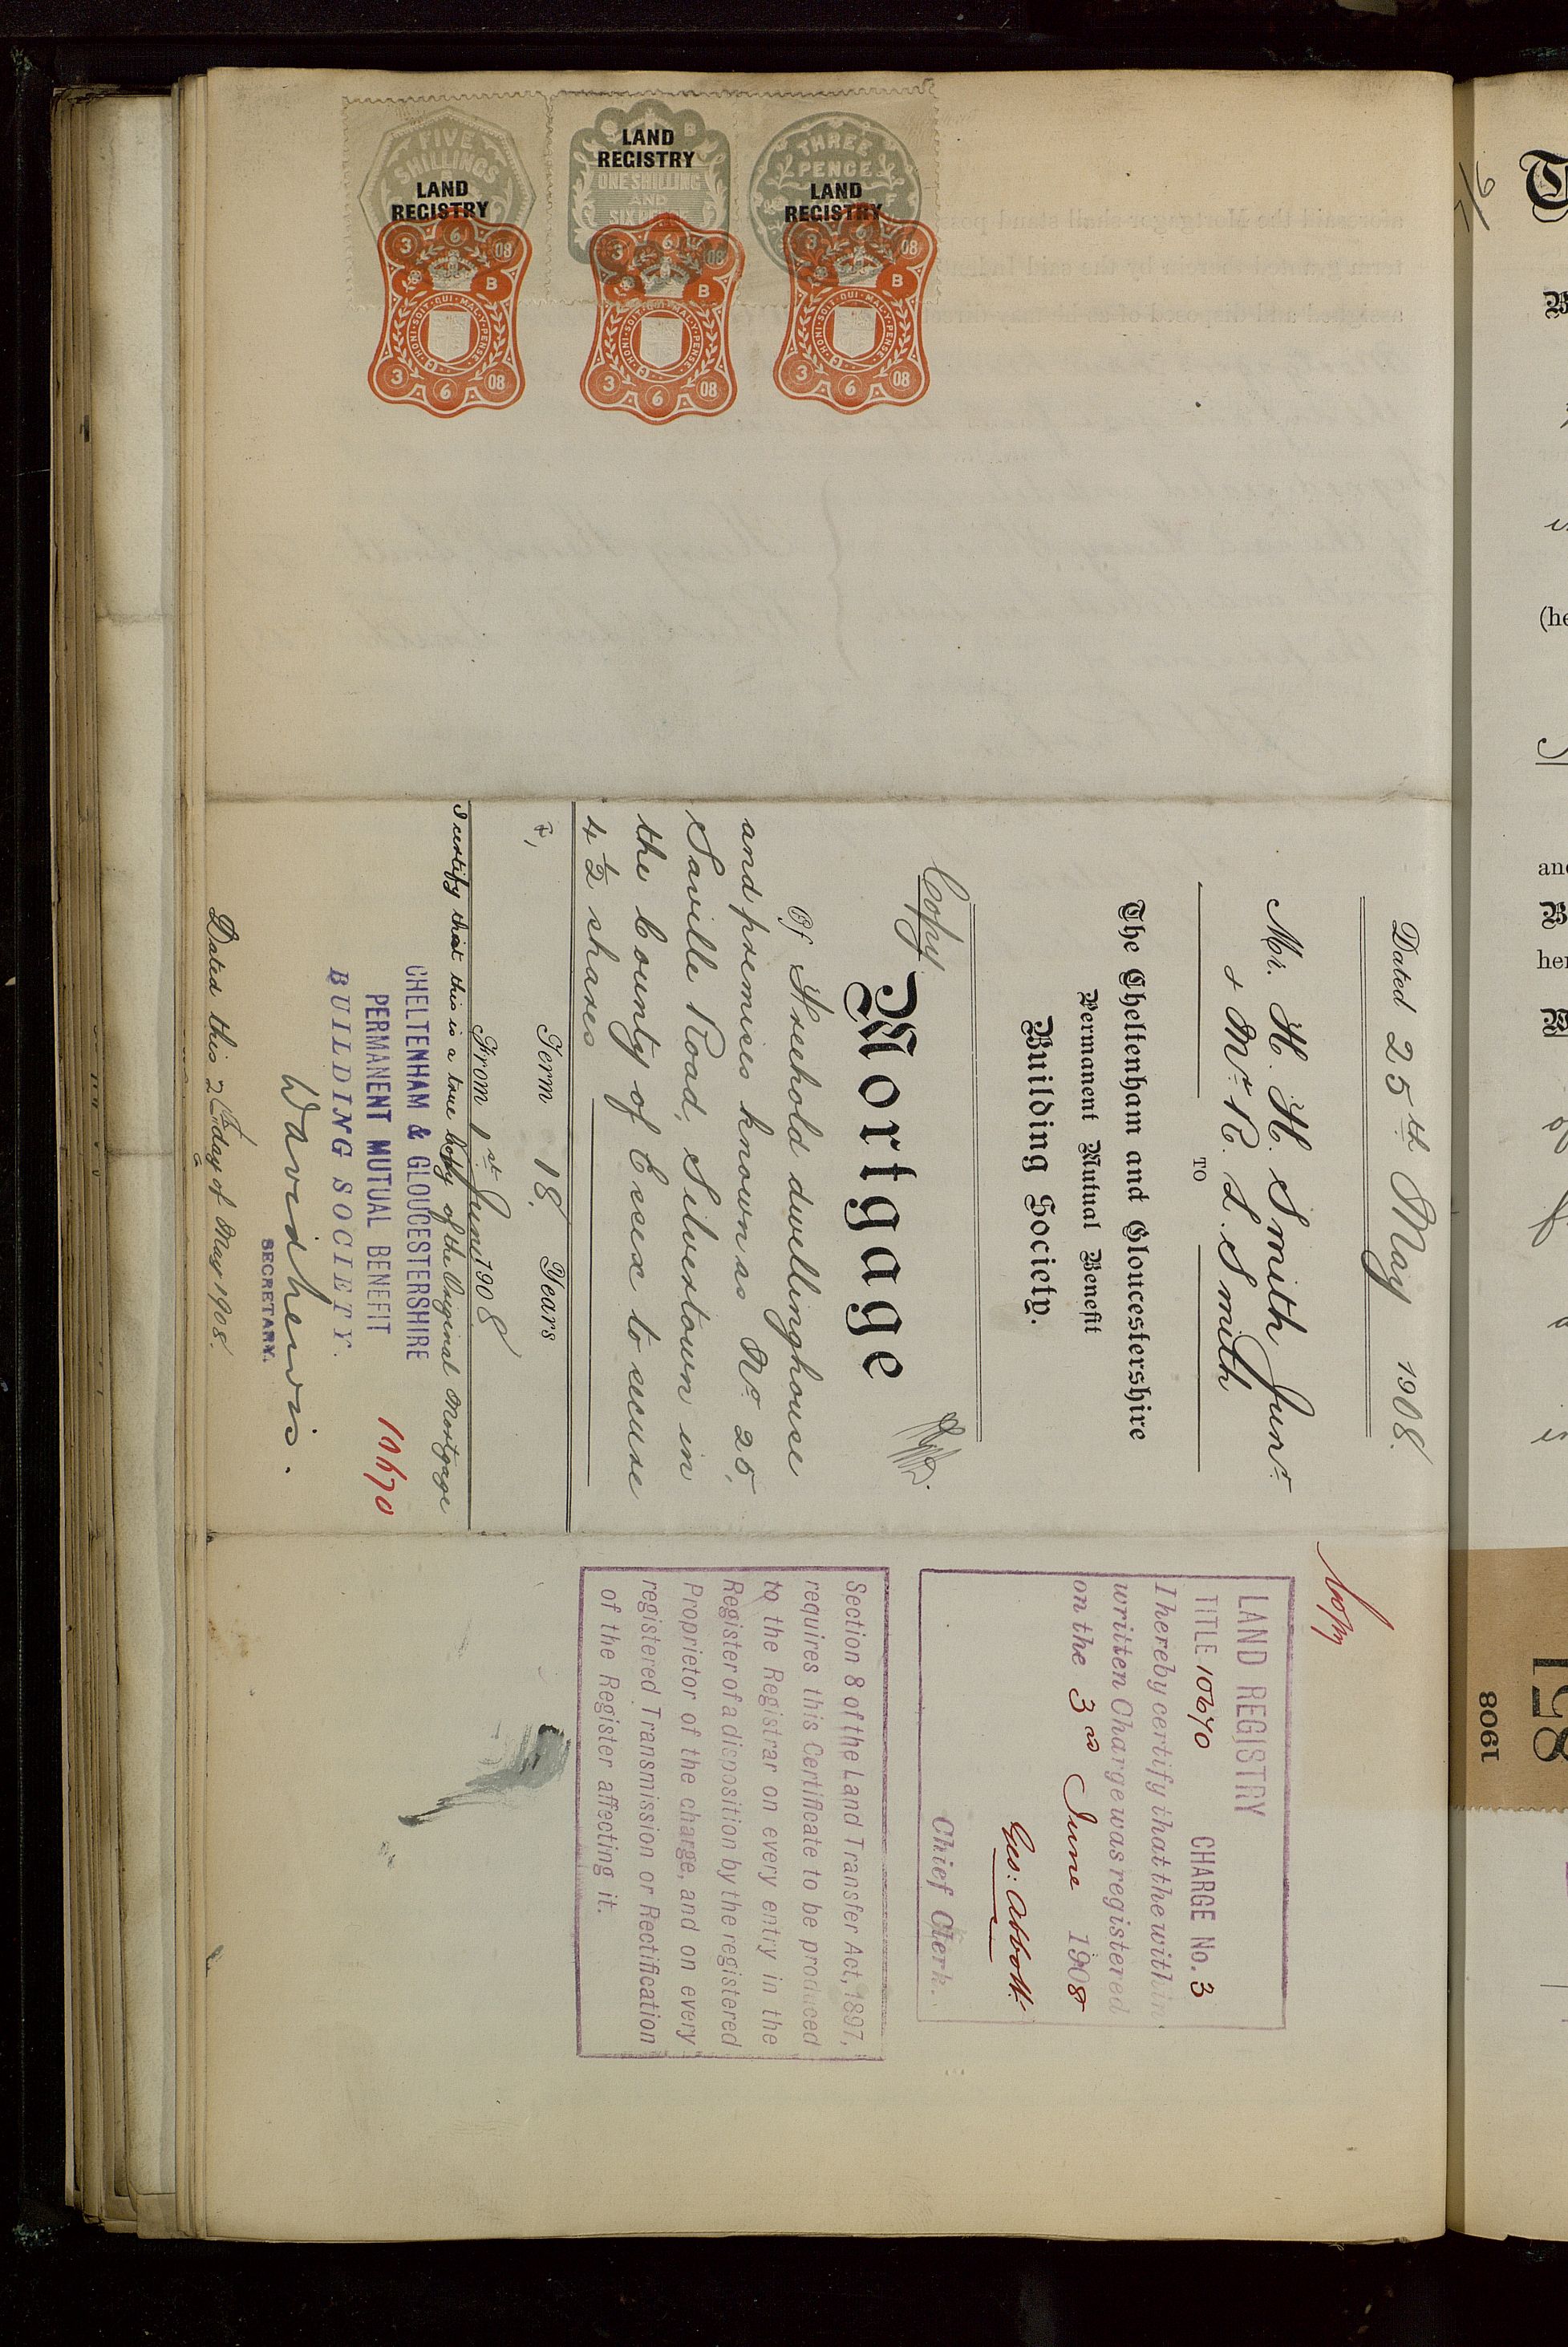 FIVE
SHILLINGS
LAND
REGISTRY
LAND
REGISTRY
ONE SHILLING
AND
SIX PENCE
THREE
PENCE
LAND
REGISTRY
3 6 08
B
HONI·SOIT·QUI·MAL·Y·PENSE
3 6 08
3 6 08
B
HONI·SOIT·QUI·MAL·Y·PENSE
3 6 08
3 6 08
B
HONI·SOIT·QUI·MAL·Y·PENSE
3 6 08
Dated 25th May 1908.
Mr. H. H. Smith Junr
& Mr R. L. Smith
TO
The Cheltenham and Gloucestershire
Permanent Mutual Benefit
Building Society.
Copy
Mortgage
Of Freehold dwellinghouse
and premises known as No 25,
Saville Road, Silvertown in
the County of Essex to secure
4½ shares
Term 18, Years
From 1st June 1908
I certify that this is a true copy of the Original Mortgage
CHELTENHAM & GLOUCESTERSHIRE
PERMANENT MUTUAL BENEFIT
BUILDING SOCIETY.
10670
David Lewis.
SECRETARY.
Dated this day of May 1908.
Copy
LAND REGISTRY
TITLE 10670 CHARGE No. 3
I hereby certify that the within
written Charge was registered
on the 3rd June 1908
Geo: Abbott.
Chief Clerk.
Section 8 of the Land Transfer Act, 1897,
requires this Certificate to be produced
to the Registrar on every entry in the
Register of a disposition by the registered
Proprietor of the charge, and on every
registered Transmission or Rectification
of the Register affecting it.
(he
and
her
158
1908